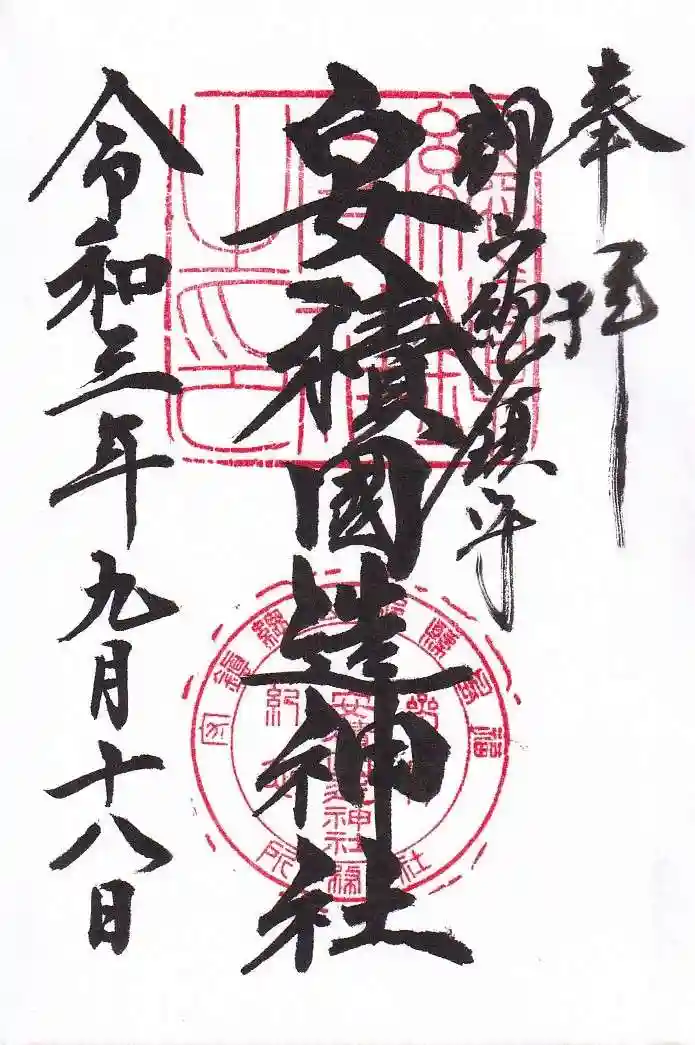 奉拝
郡山總鎮守
安積國造神社
令和三年九月十八日